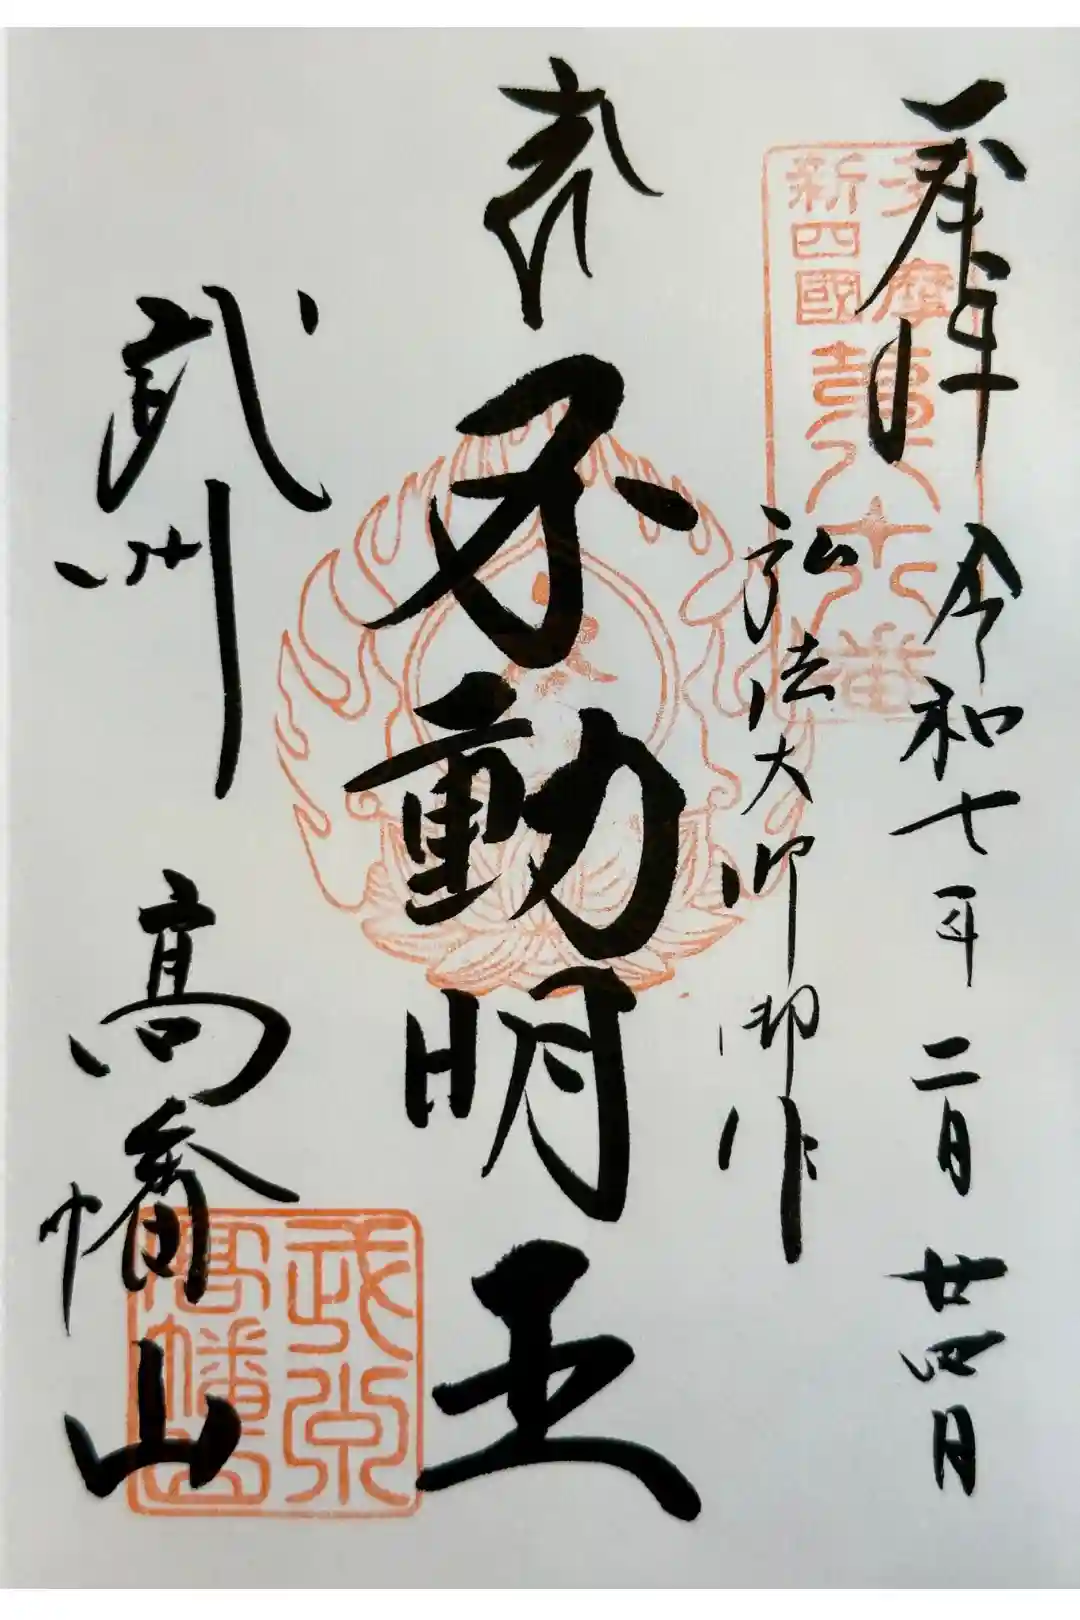 奉拜 令和七年二月廿四日
多摩
新四國
第八十八番
弘法大師御作
不動明王
武州 高幡山
武州
高幡山